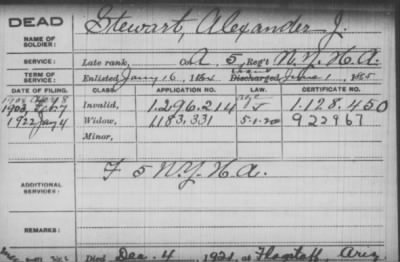 DEAD
NAME OF SOLDIER: Stewart, Alexander J.
SERVICE: Late rank, Co. A, 5 Reg't N.Y.H.A.
TERM OF SERVICE: Enlisted Jany 16, 1864 Discharged June 1, 1865
DATE OF FILING. CLASS. APPLICATION NO. LAW. CERTIFICATE NO.
Invalid, 1.296.214 1.128.450
1922 Jany 4 Widow, 1183,331 5-1-20 922967
Minor,
ADDITIONAL SERVICES: F 5 N.Y.H.A.
REMARKS:
Died Dec. 4, 1921, at Flagstaff, Ariz.